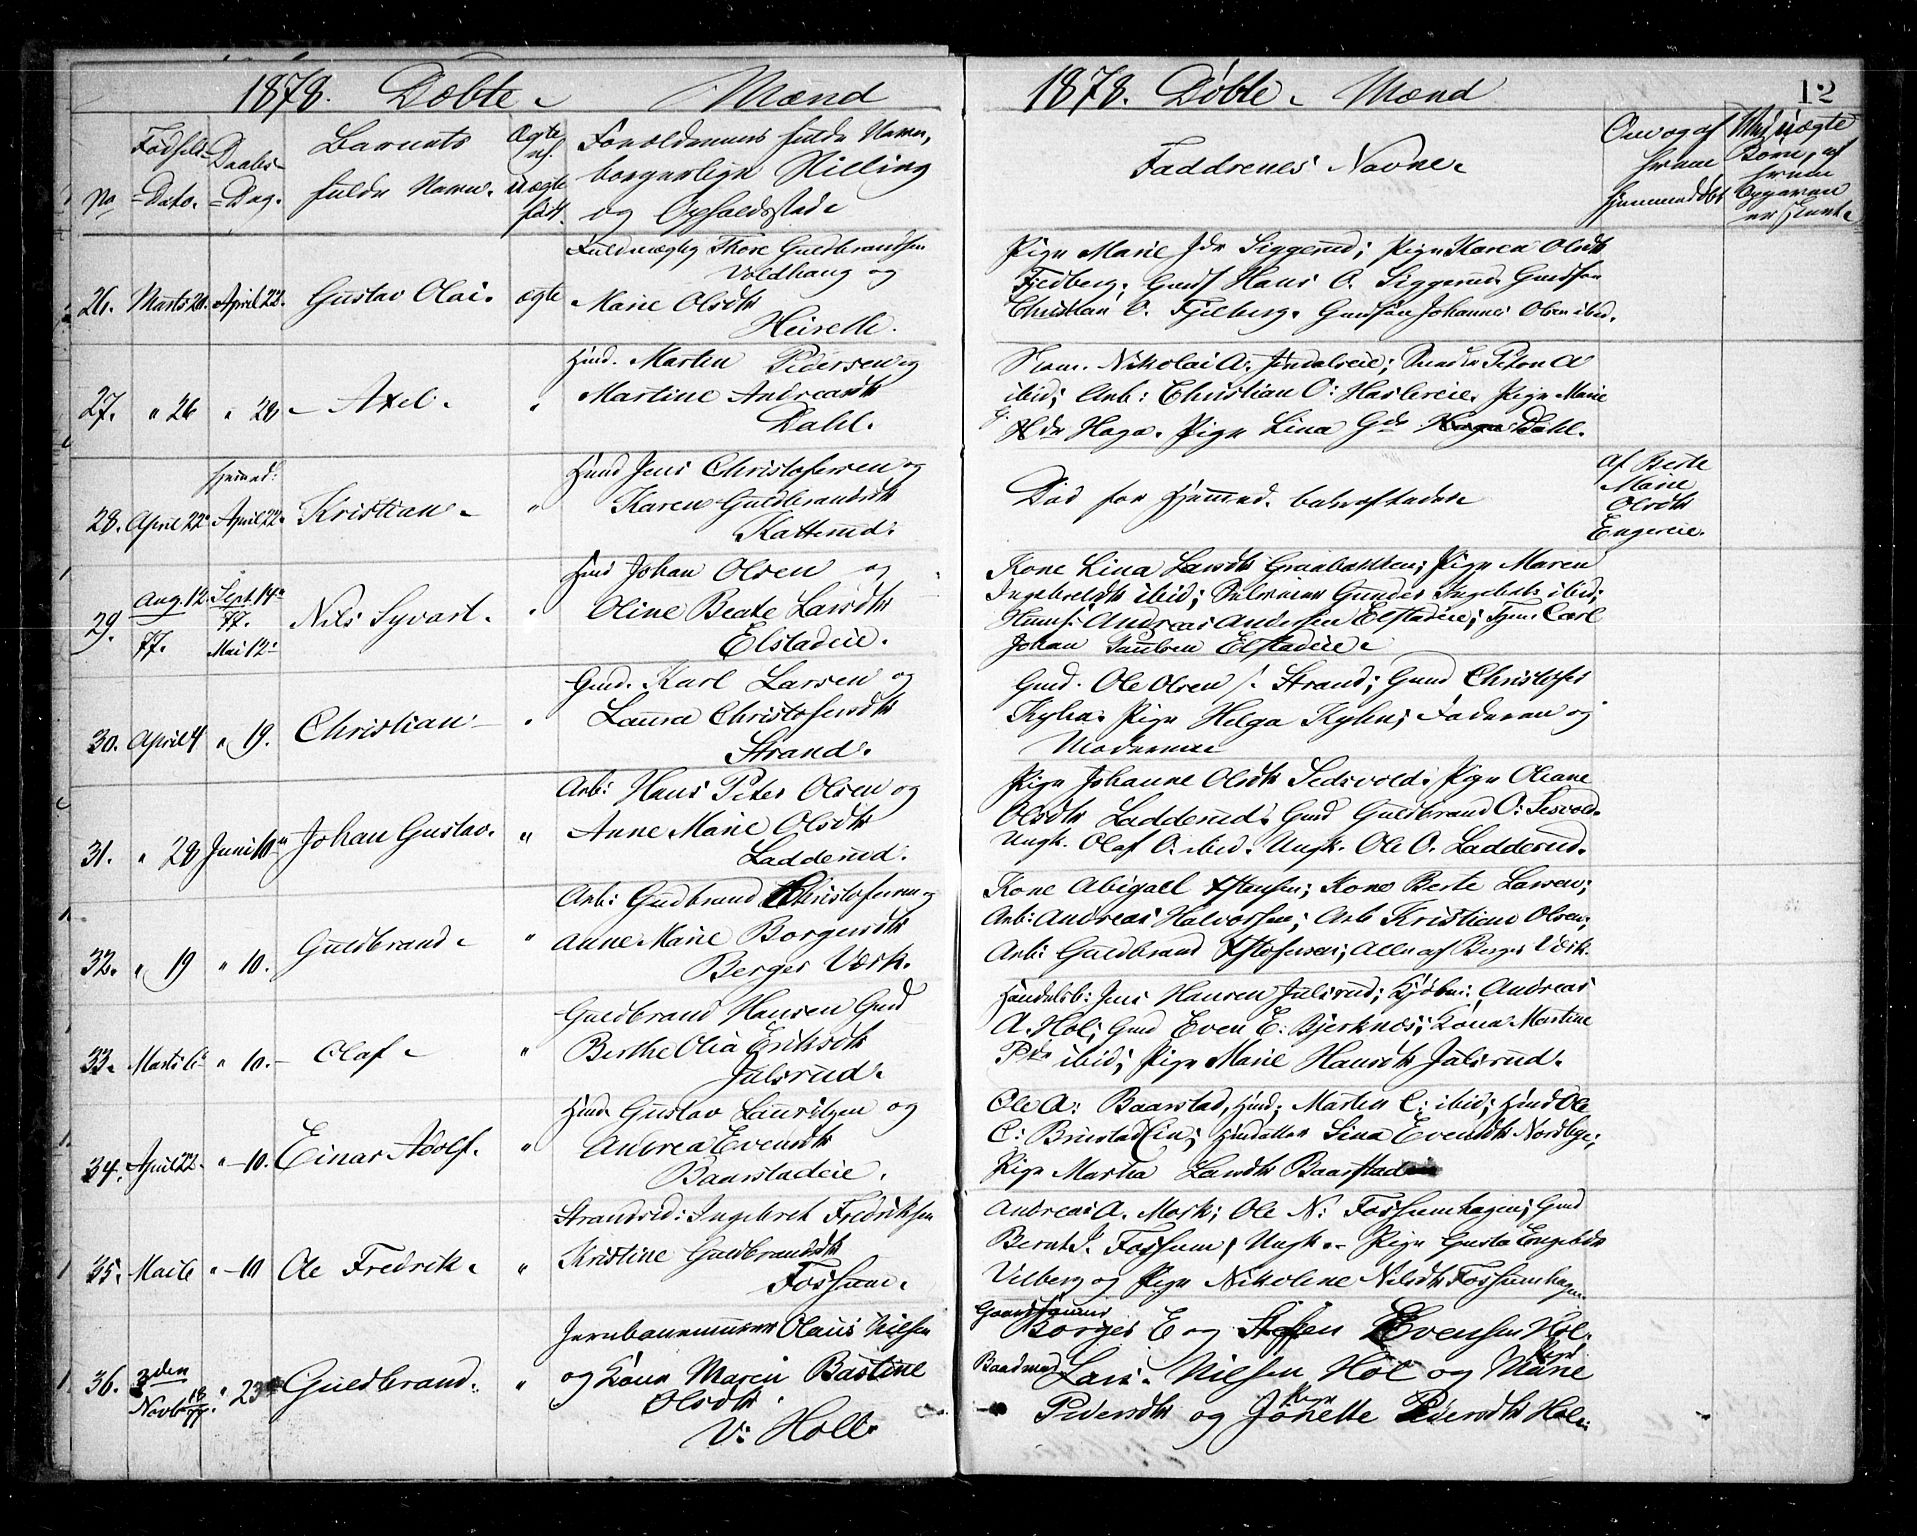 1878. Døbte. Mænd
No
Fødsels-
Dato.
Daabs-
Dag.
Barnets
fulde Navn.
Ægte
el.
uægte
født.
Forældrenes fulde Navn,
borgerlige Stilling
og Opholdssted.
26. Marts 20. April 22. Gustav Olai. ægte
Fuldmægtig Thore Guldbrandsen
Voldhaug og
Marie Olsdtr
Heiretle.
27. " 26 " 28 - Axel. "
Husd. Martin Pedersen og
Martine Andreasdtr
Dahl.
28. April 22. Hjemmed: April 22. Kristian. "
Husd Jens Christofersen og
Karen Guldbrandsdtr
Katterud.
29. Aug. 12. 77. Sept. 14. 77. Mai 12. Nils Syvart. "
Husd Johan Olsen og
Oline Beate Larsdtr
Elstadeie.
30. April 4 " 19. Christian "
Gmd. Karl Larsen og
Laura Christofersdtr
Strand.
31. " 28 Juni 10 Johan Gustav. "
Arb: Hans Peter Olsen og
Anne Marie Olsdtr
Ladderud.
32. " 19 " 10. Guldbrand. "
Arb: Gudbrand Christofersen og
Anne Marie Borgersdtr
Berger Værk.
33. Marts 6 " 10. - Olaf. "
Guldbrand Hansen Gmd
Berthe Olia Eriksdtr
Julsrud.
34. April 22. " - 10. Einar Adolf. "
Husd. Gustav Lauritzen og
Andrea Evensdtr
Baarstadeie.
35. Mai 6 " - 10 Ole Fredrik. "
Strandsid: Ingebret Fredriksen
Kristine Guldbrandsdtr
Fossum.
36. 3den Novbr 18/77. " 23 Guldbrand. "
Jernbanemurer Olaus Nilsen
og Kone Maren Bastine
Olsdtr
V: Holl.
1878. Døbte. Mænd
12
Faddrenes Navne.
Om og af
hvem
hjemmedøbt
Ved uægte
Børn, af
hvem
Opgaven
er hent.
Pige Marie Jdr Siggerud; Pige Karen Olsdtr
Fjelberg; Gmdf Hans O. Siggerud. Gmdsøn
Christian O. Fjelberg. Gmdsøn Johannes Olsen ibid.
Nikolai A. Dahleie;
ibid; Arb: Christian O: Haslereie. Pige Marie
dr Haga. Pige Lina Gdr Dahl.
Død før Hjemmed. bekræftedes
Af Berte
Marie
Olsdtr
Engereie.
Kone Lina Larsdtr Graabakken; Pige Maren
Ingebretsdtr ibid; Gunder Ingebrets ibid;
Husm: Andreas Andersen Elstadeie; Tjen: Carl
Johan Paulsen Elstadeie.
Gmd. Ole Olsen S. Strand; Gmd Christofer
Kyhn. Pige Helga Kyhn; Faderen og
Moderen.
Pige Johanne Olsdtr Sedsvold. Pige Oleane
Olsdtr Ladderud. Gmd Guldbrand O: Sesvold.
Ungk. Olaf O. ibid. Ungk. Ole O. Ladderud.
Kone Abigael Hansen; Kone Berte Larsen;
Arb: Andreas Halvorsen; Arb Kristian Olsen;
Arb: Guldbrand Xstofersen; Alle af Berger Værk.
Handelsb: Jens Hansen Julsrud; Kjøbm: Andreas
A. Hol; Gmd Even E. Bjerknæs; Kona Martine
Pdr ibid; Pige Marie Hansdtr Julsrud.
Ole A: Baarstad, Husd; Martin C: ibid; Husd Ole
C: Lina Evensdtr Nordbye;
Pige Martha Larsdtr Baarstad
Andreas A. Mork; Ole N: Fossumhagen; Gmd
Bernt J. Fossum; Ungk. - Pige Gusta Engebdr
Vilberg og Pige Nikoline Nilsdtr Fossumhagen.
Gaardmænd
Borger E og Steffen Evensen Hol.
Baadmd Lars. Nilsen Hol og Pige Marie
Pedersdtr og Pige Jonette Pedersdtr Hol.